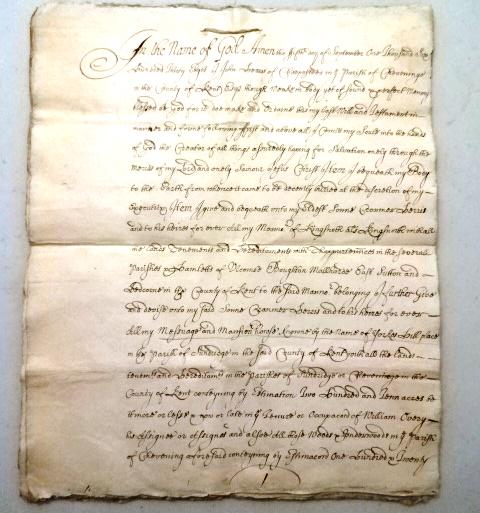 In the Name of God Amen the fifth day of September One Thousand Six
hundred sixty Eight I John Herris of in ye Parish of Chevening
in the County of Kent Esqr though Weake in body yet of sound & perfect Memory
blessed be God for it doe make and ordaine this my last Will and Testament in
manner and forme following first and above all I Comitt my Soule into the hands
of God the Creator of all things assuredly hoping for Salvation onely through the
Merits of my Lord and onely Saviour Jesus Christ Item I bequeath my Body
to the Earth from whence it came to be decently buried at the discretion of my
Executrix Item I give and bequeath unto my Eldest Sonne Cranmer Herris
and to his heires for ever All my Mannor of Kingsnoth als Kingsnorth with all
lands Tenements and Hereditaments with Thappurtenances in the severall
Parishes & Hamletts of Ulcombe Boughton Malherbe East Sutton and
in the County of Kent to the said Mannor belonging I further Give
and devise unto my said Sonne Cranmer Herris and to his heires for ever
All my Messuage and Mansion house knowne by the Name of Yorkes hill place
in ye Parish of Sundridge in the said County of Kent with all the lands
tenemts and Hereditamts in the Parishes of Sundridge or Chevening in the
County of Kent conteyning by Estimation Two Hundred and Tenn acres be
it more or lesse & now or late in ye Tenure or Occupacon of William Overy
his Assignee or Assignes and alsoe All those Woods & Underwoods in ye Parish
of Chevening aforesaid conteyning by Estimacon One Hundred & Twenty
1